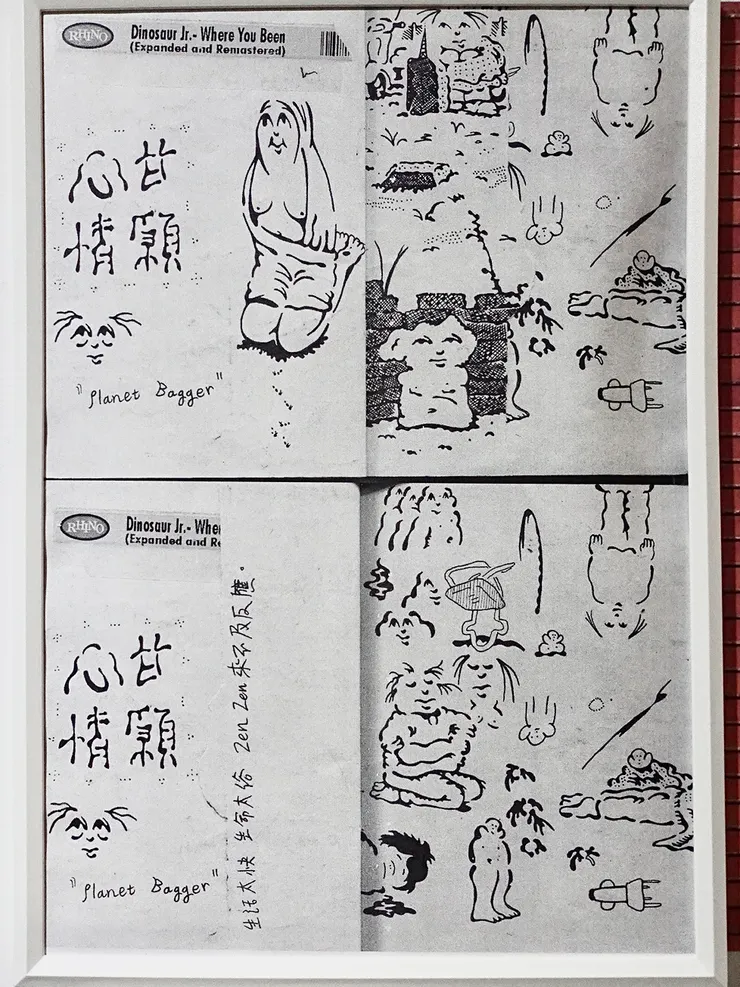 RHINO
Dinosaur Jr.- Where You Been
(Expanded and Remastered)
心甘
情願
"Planet Bagger"
RHINO
Dinosaur Jr.- Wher
(Expanded and Re
心甘
情願
"Planet Bagger"
生活太快 生命太俗 Zen Zen 來不及反應。